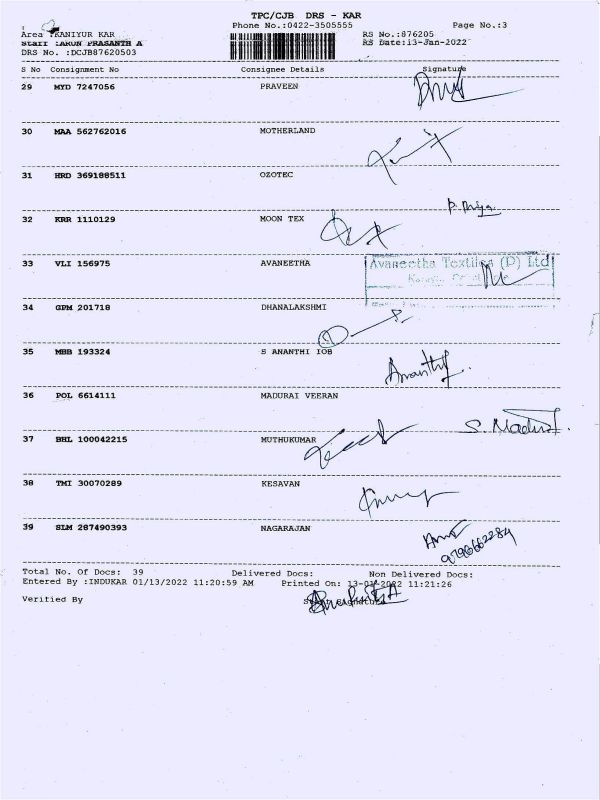 TPC/CJB DRS - KAR
Phone No.:0422-3505555 Page No.:3
Area :KANIYUR KAR RS No.:876205
Staff :ARUN PRASANTH A RS Date:13-Jan-2022
DRS No. :DCJB87620503
S No Consignment No Consignee Details Signature
29 MYD 7247056 PRAVEEN
30 MAA 562762016 MOTHERLAND
31 HRD 369188511 OZOTEC
P. Priya
32 KRR 1110129 MOON TEX
33 VLI 156975 AVANEETHA Avaneetha Textiles (P) Ltd
34 GPM 201718 DHANALAKSHMI
35 MBB 193324 S ANANTHI IOB
Ananthi
36 POL 6614111 MADURAI VEERAN
S. Madur
37 BHL 100042215 MUTHUKUMAR
38 TMI 30070289 KESAVAN
39 SLM 287490393 NAGARAJAN
Total No. Of Docs: 39 Delivered Docs: Non Delivered Docs:
Entered By :INDUKAR 01/13/2022 11:20:59 AM Printed On: 13-01-2022 11:21:26
Verified By Staff Signature